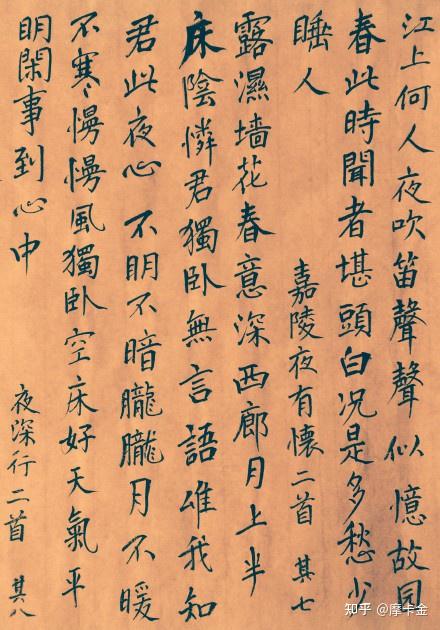 江上何人夜吹笛聲聲似憶故園
春此時聞者堪頭白况是多愁少
睡人
嘉陵夜有懷二首 其七
露濕墻花春意深西廊月上半
床陰憐君獨卧無言語唯我知
君此夜心不眀不暗朧朧月不暖
不寒慢慢風獨卧空床好天氣平
眀閑事到心中
夜深行二首 其八
知乎 @摩卡金